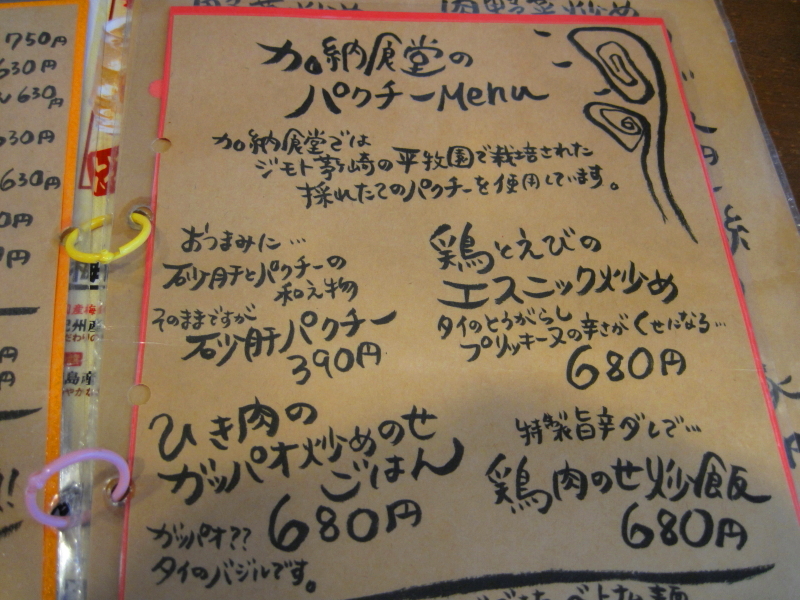 加納食堂の
パクチーMenu
加納食堂では
ジモト茅ヶ崎の平牧園で栽培された
採れたてのパクチーを使用しています。
おつまみに…
砂肝とパクチーの
和え物
そのままですが
砂肝パクチー
390円
鶏とえびの
エスニック炒め
タイのとうがらし
プリッキーヌの辛さがくせになる…
680円
ひき肉の
ガッパオ炒めのせ
ごはん
680円
ガッパオ??
タイのバジルです。
特製旨辛ダレで…
鶏肉のせ炒飯
680円
750円
630円
630円
630円
630円
島産